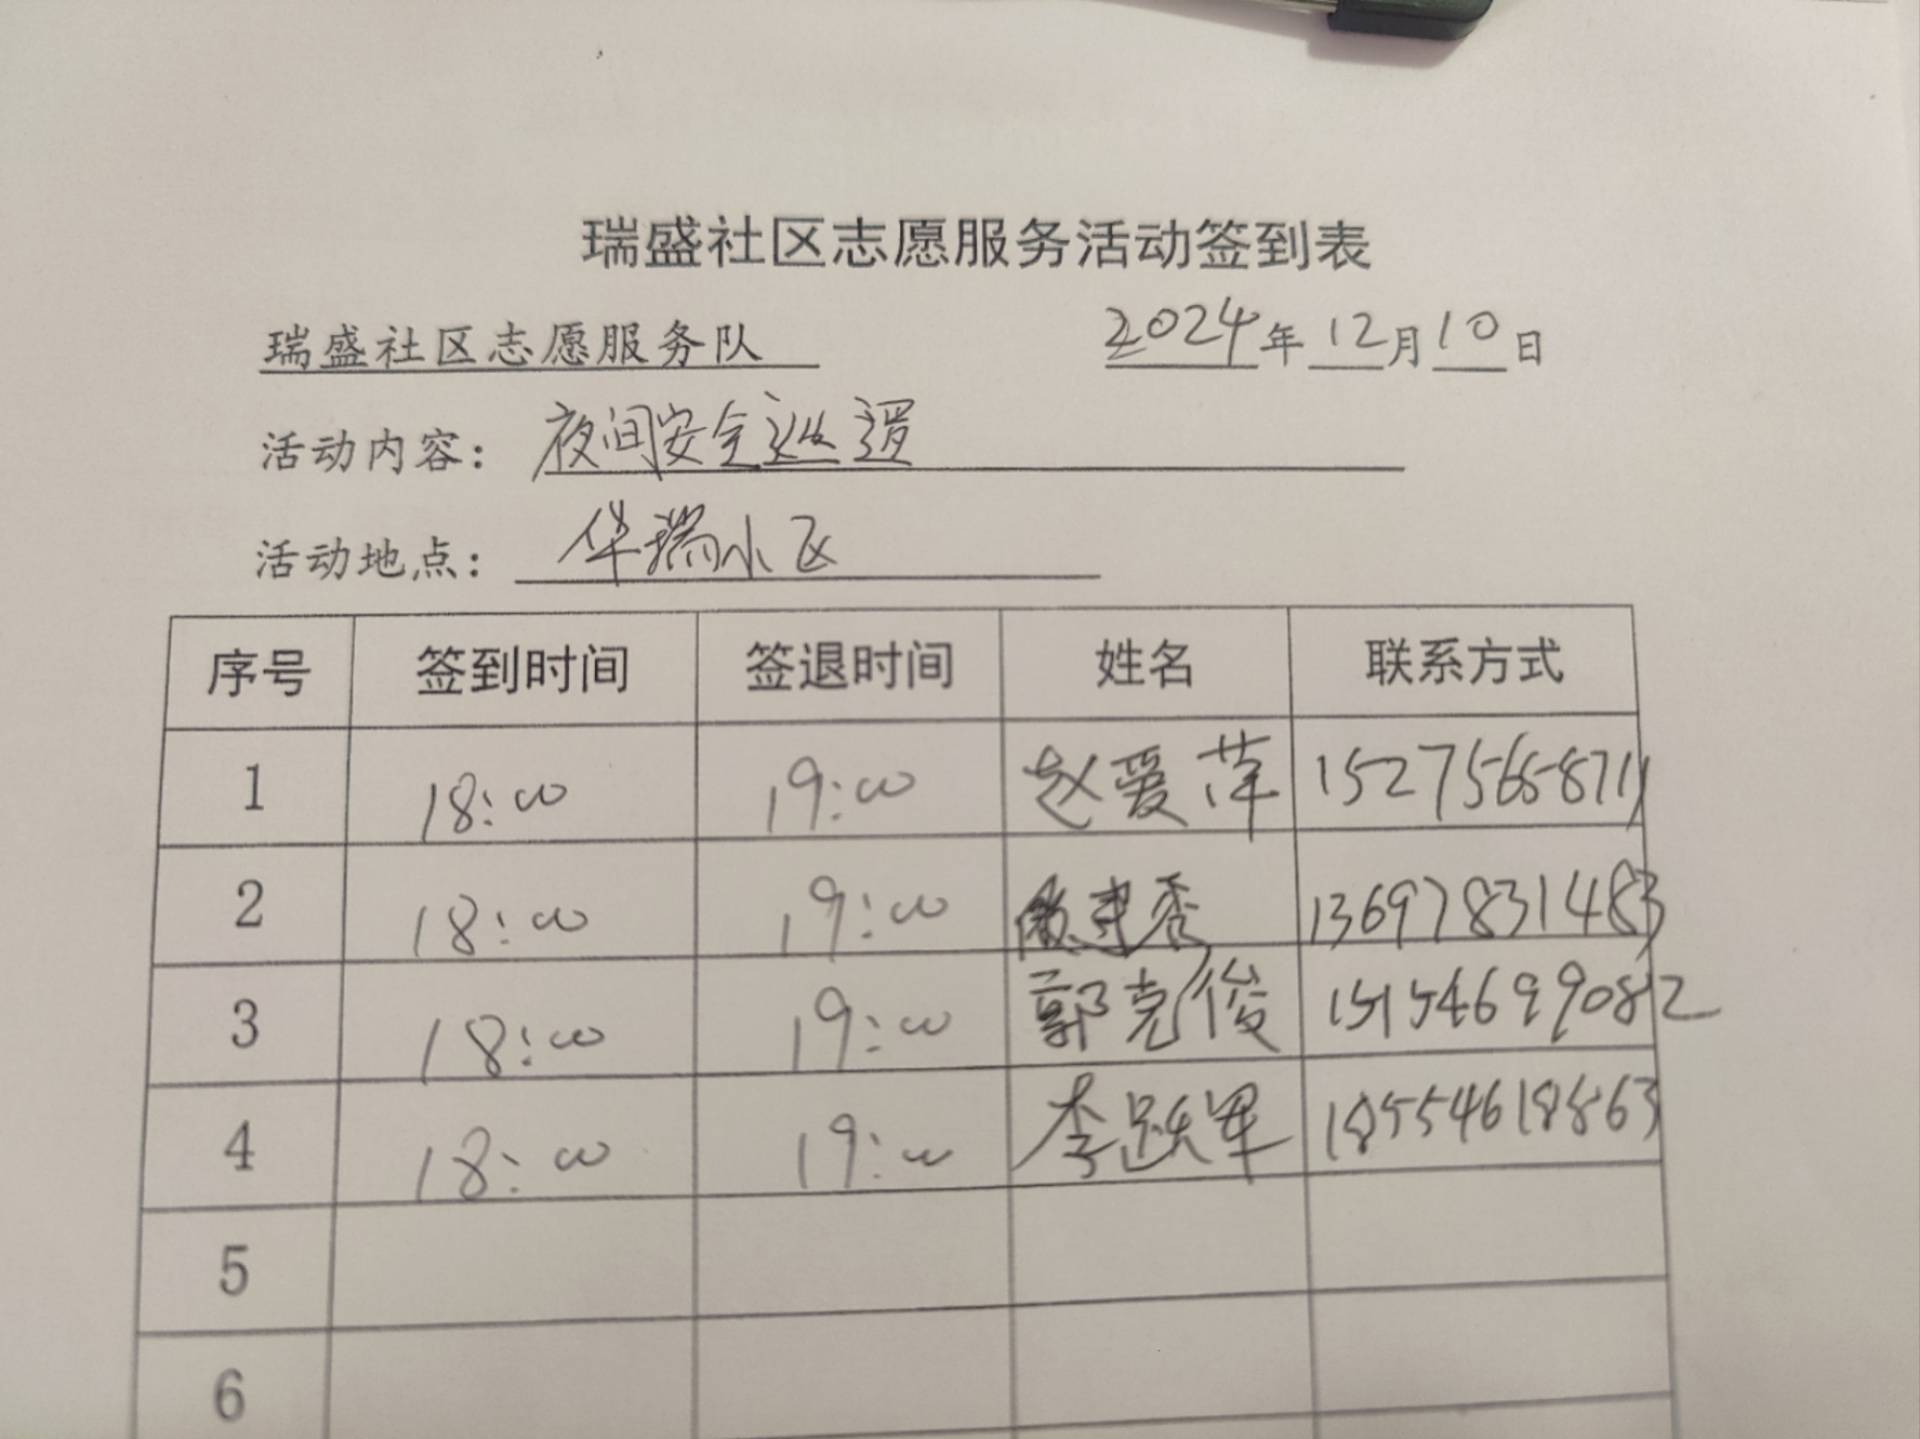 瑞盛社区志愿服务活动签到表
瑞盛社区志愿服务队 2024年12月10日
活动内容：夜间安全巡逻
活动地点：华瑞小区
序号 签到时间 签退时间 姓名 联系方式
1 18:00 19:00 赵爱萍 15275658711
2 18:00 19:00 秀 13697831483
3 18:00 19:00 郭克俊 15154699082
4 18:00 19:00 李跃军 18554618863
5
6